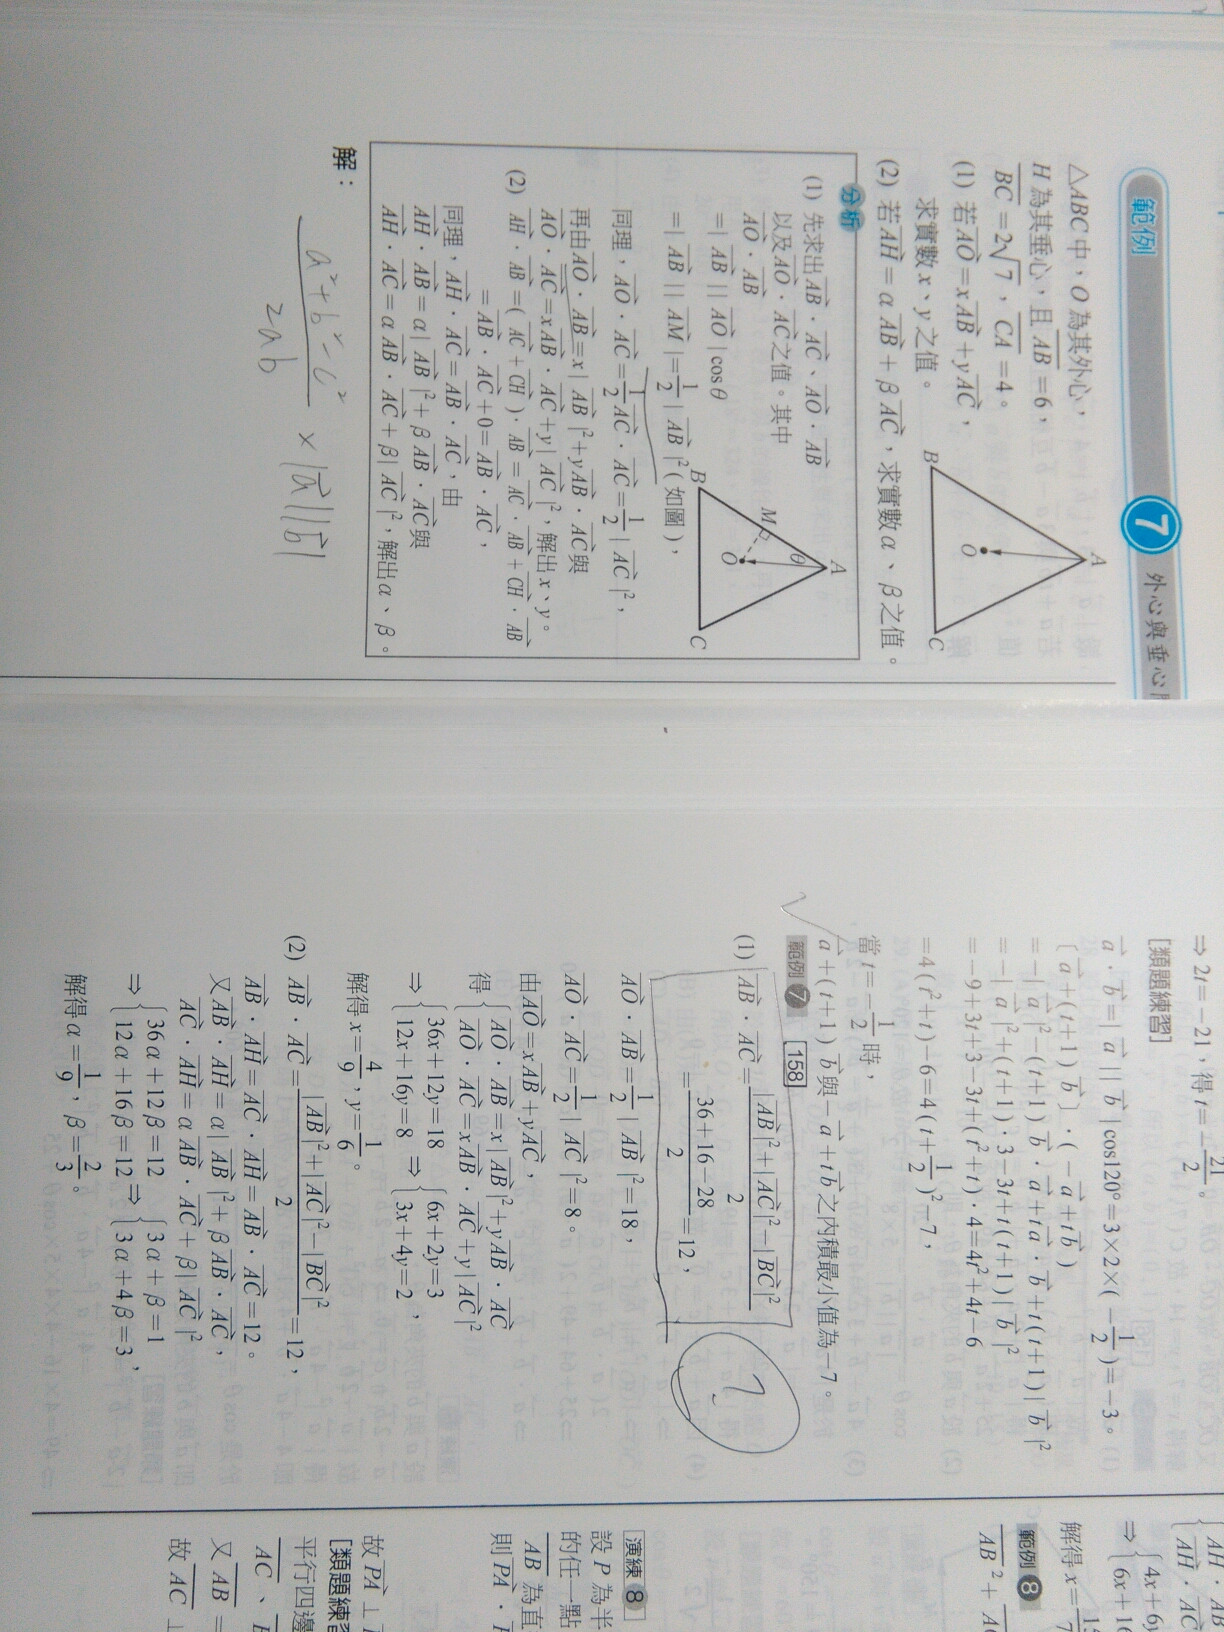 範例 7 外心與垂心
△ABC中，O為其外心，
H為其垂心，且AB=6，
BC=2√7，CA=4。
(1) 若AO=xAB+yAC，
求實數x、y之值。
(2) 若AH=αAB+βAC，求實數α、β之值。
A
B
C
O
分析
(1) 先求出AB·AC、AO·AB
以及AO·AC之值。其中
AO·AB
=|AB||AO|cosθ
=|AB||AM|=1/2|AB|²(如圖)，
同理，AO·AC=1/2AC·AC=1/2|AC|²，
再由AO·AB=x|AB|²+yAB·AC與
AO·AC=xAB·AC+y|AC|²，解出x、y。
(2) AH·AB=(AC+CH)·AB=AC·AB+CH·AB
=AB·AC+0=AB·AC，
同理，AH·AC=AB·AC，由
AH·AB=α|AB|²+βAB·AC與
AH·AC=αAB·AC+β|AC|²，解出α、β。
A
θ
M
O
B
C
解：
a²+b²-c²/2ab ×|a||b|
⇒2t=-21，得t=-21/2。
[類題練習]
a·b=|a||b|cos120°=3×2×(-1/2)=-3。
〔a+(t+1)b〕·(-a+tb)
=-|a|²-(t+1)b·a+ta·b+t(t+1)|b|²
=-|a|²+(t+1)·3-3t+t(t+1)|b|²
=-9+3t+3-3t+(t²+t)·4=4t²+4t-6
=4(t²+t)-6=4(t+1/2)²-7，
當t=-1/2時，
a+(t+1)b與-a+tb之內積最小值為-7。
範例 7 158
(1) AB·AC=|AB|²+|AC|²-|BC|²/2
=36+16-28/2=12，
?
AO·AB=1/2|AB|²=18，
AO·AC=1/2|AC|²=8。
由AO=xAB+yAC，
得{AO·AB=x|AB|²+yAB·AC
AO·AC=xAB·AC+y|AC|²
⇒{36x+12y=18 ⇒{6x+2y=3
12x+16y=8 3x+4y=2，
解得x=4/9，y=1/6。
(2) AB·AC=|AB|²+|AC|²-|BC|²/2=12，
AB·AH=AC·AH=AB·AC=12。
又AB·AH=α|AB|²+βAB·AC，
AC·AH=αAB·AC+β|AC|²
⇒{36α+12β=12 ⇒{3α+β=1
12α+16β=12 3α+4β=3，
解得α=1/9，β=2/3。
AH·AB
AH·AC
⇒{4x+6y
6x+16
解得x=
範例 8
AB²+AC
演練 8
設P為半
的任一點
AB為直
則PA·
故PA⊥
[類題練習
平行四邊
AC、
又AB=
故AC⊥